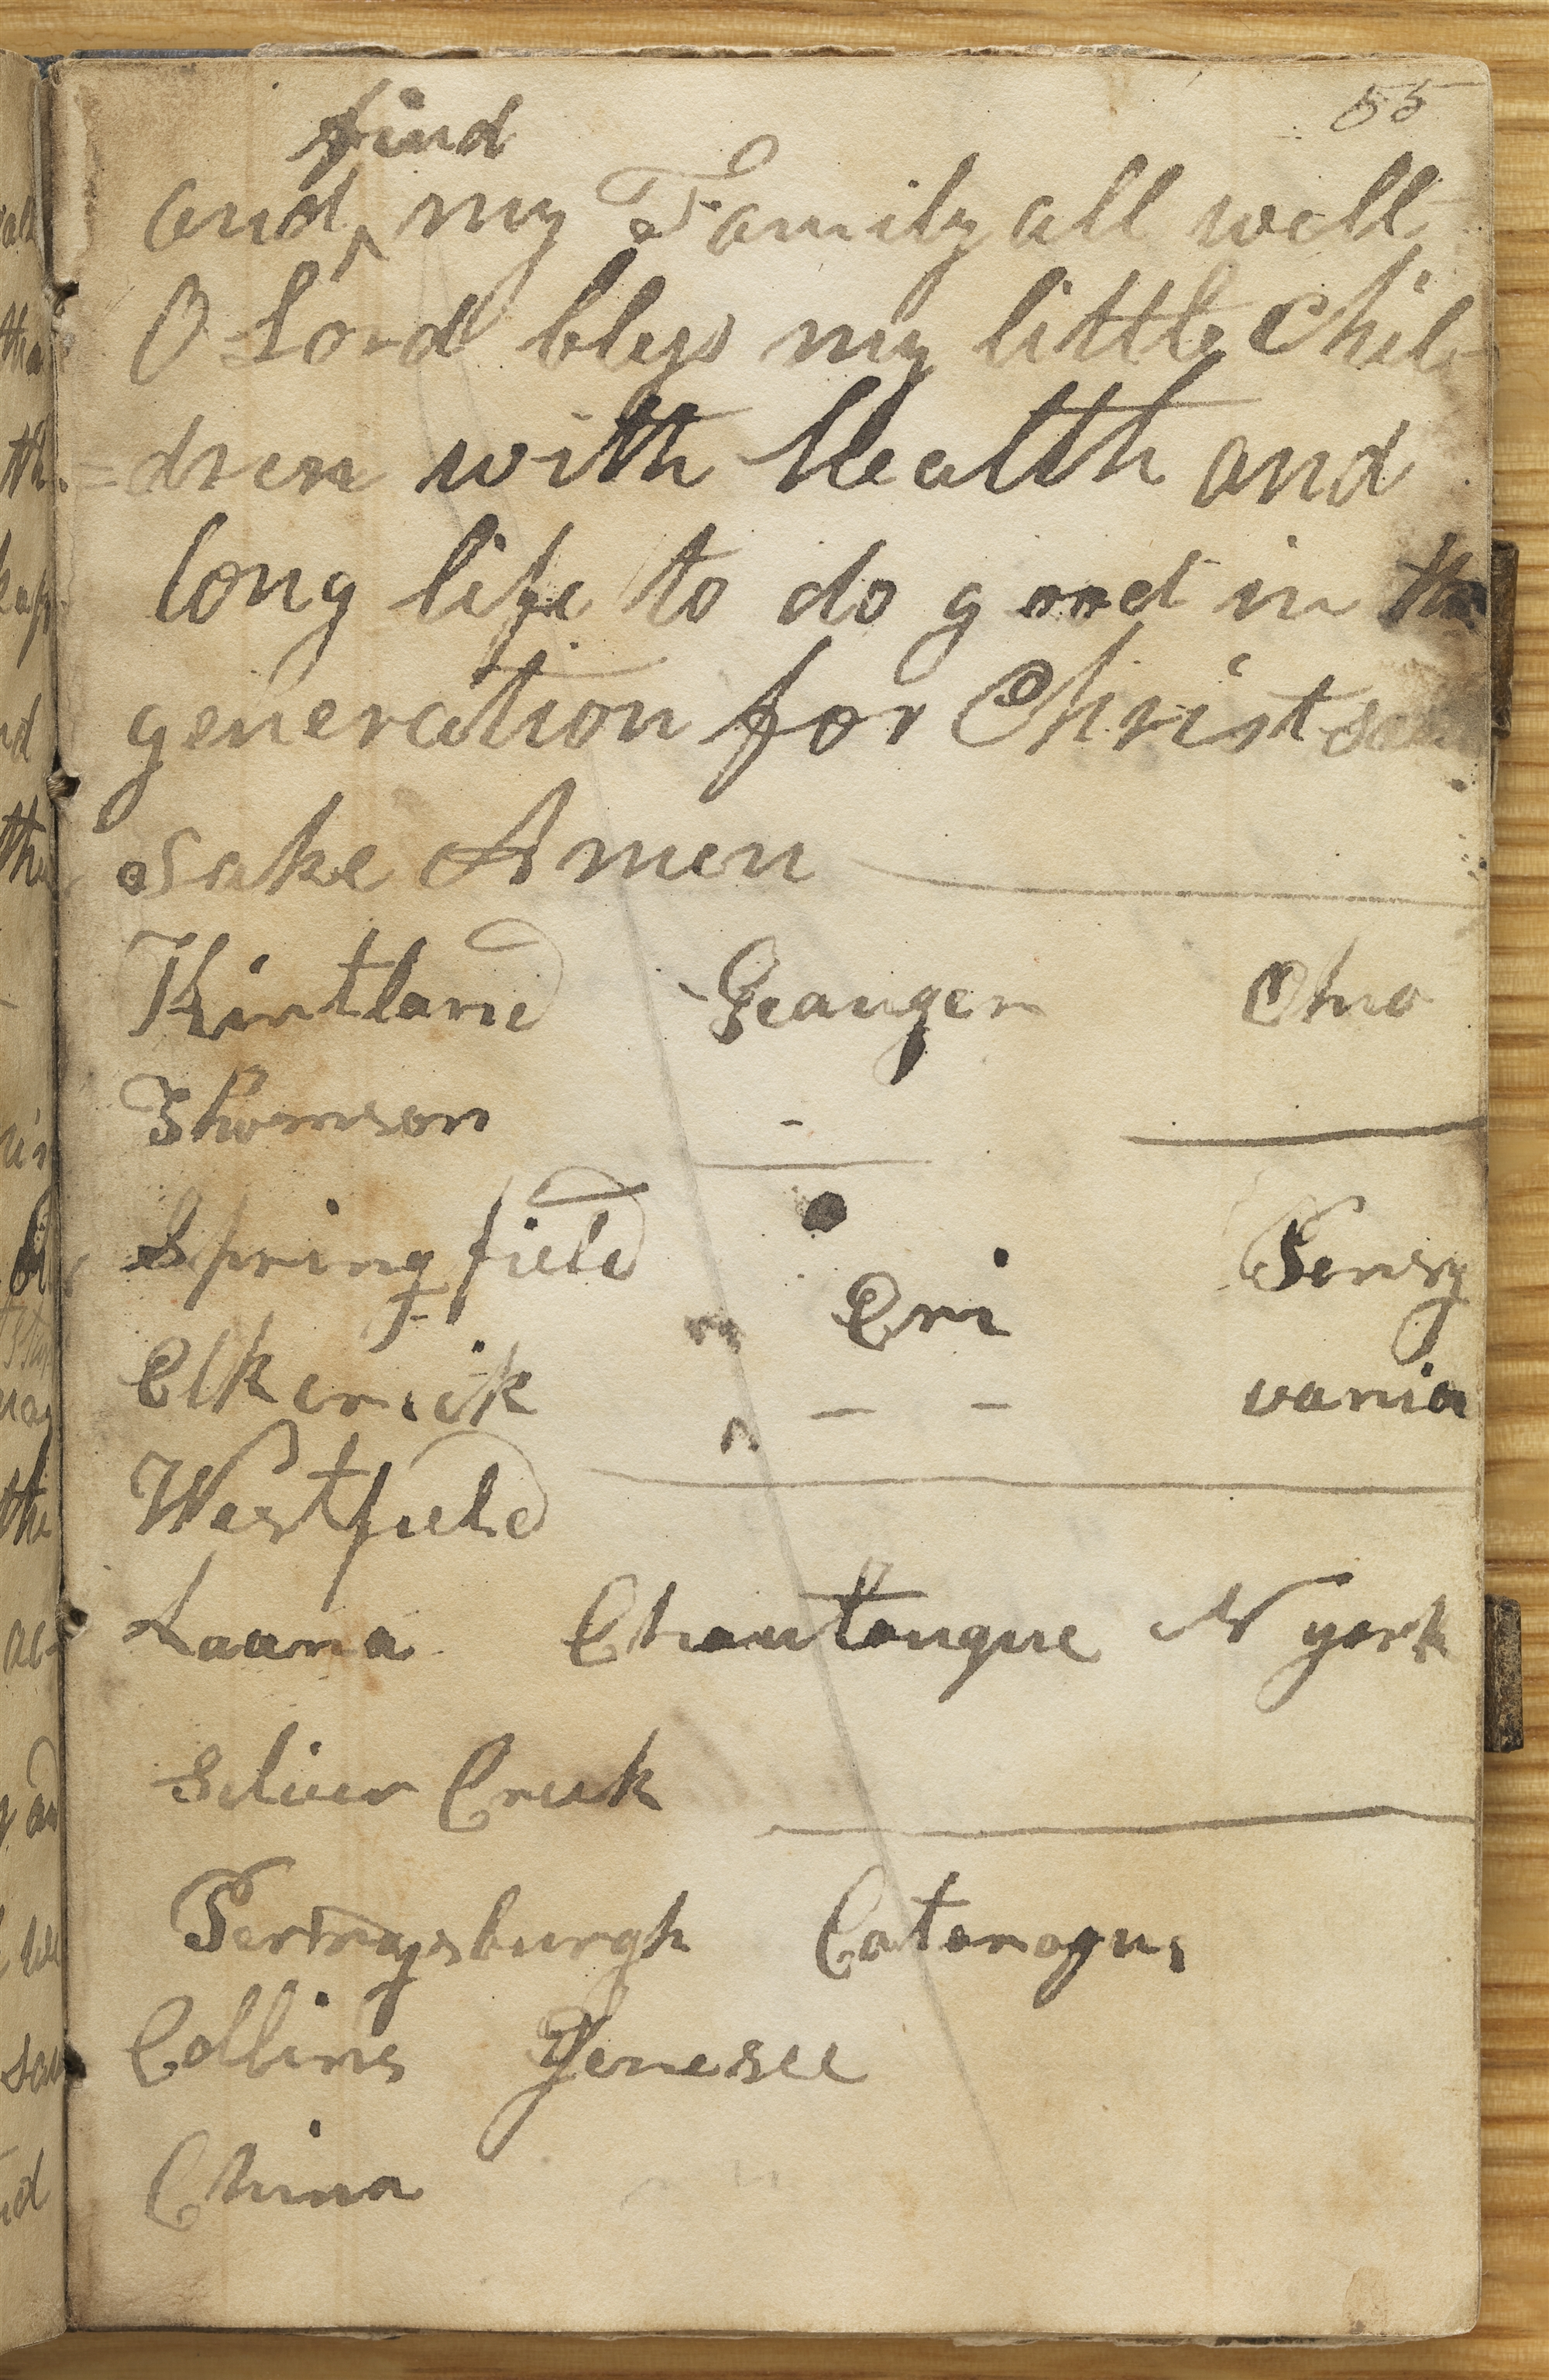 55
find
and ^ my Family all well
O Lord bless my little Chil
=dren with Health and
long life to do good in
generation for Christ
sake Amen
Kirtland Geauger Ohio
Thomson -
Springfield Pensy
Eri
Elkcrick - - vania
Westfield
Laana Chautauque N york
Silver Creek
Perrysburgh Cataragus
Collins Genesee
China